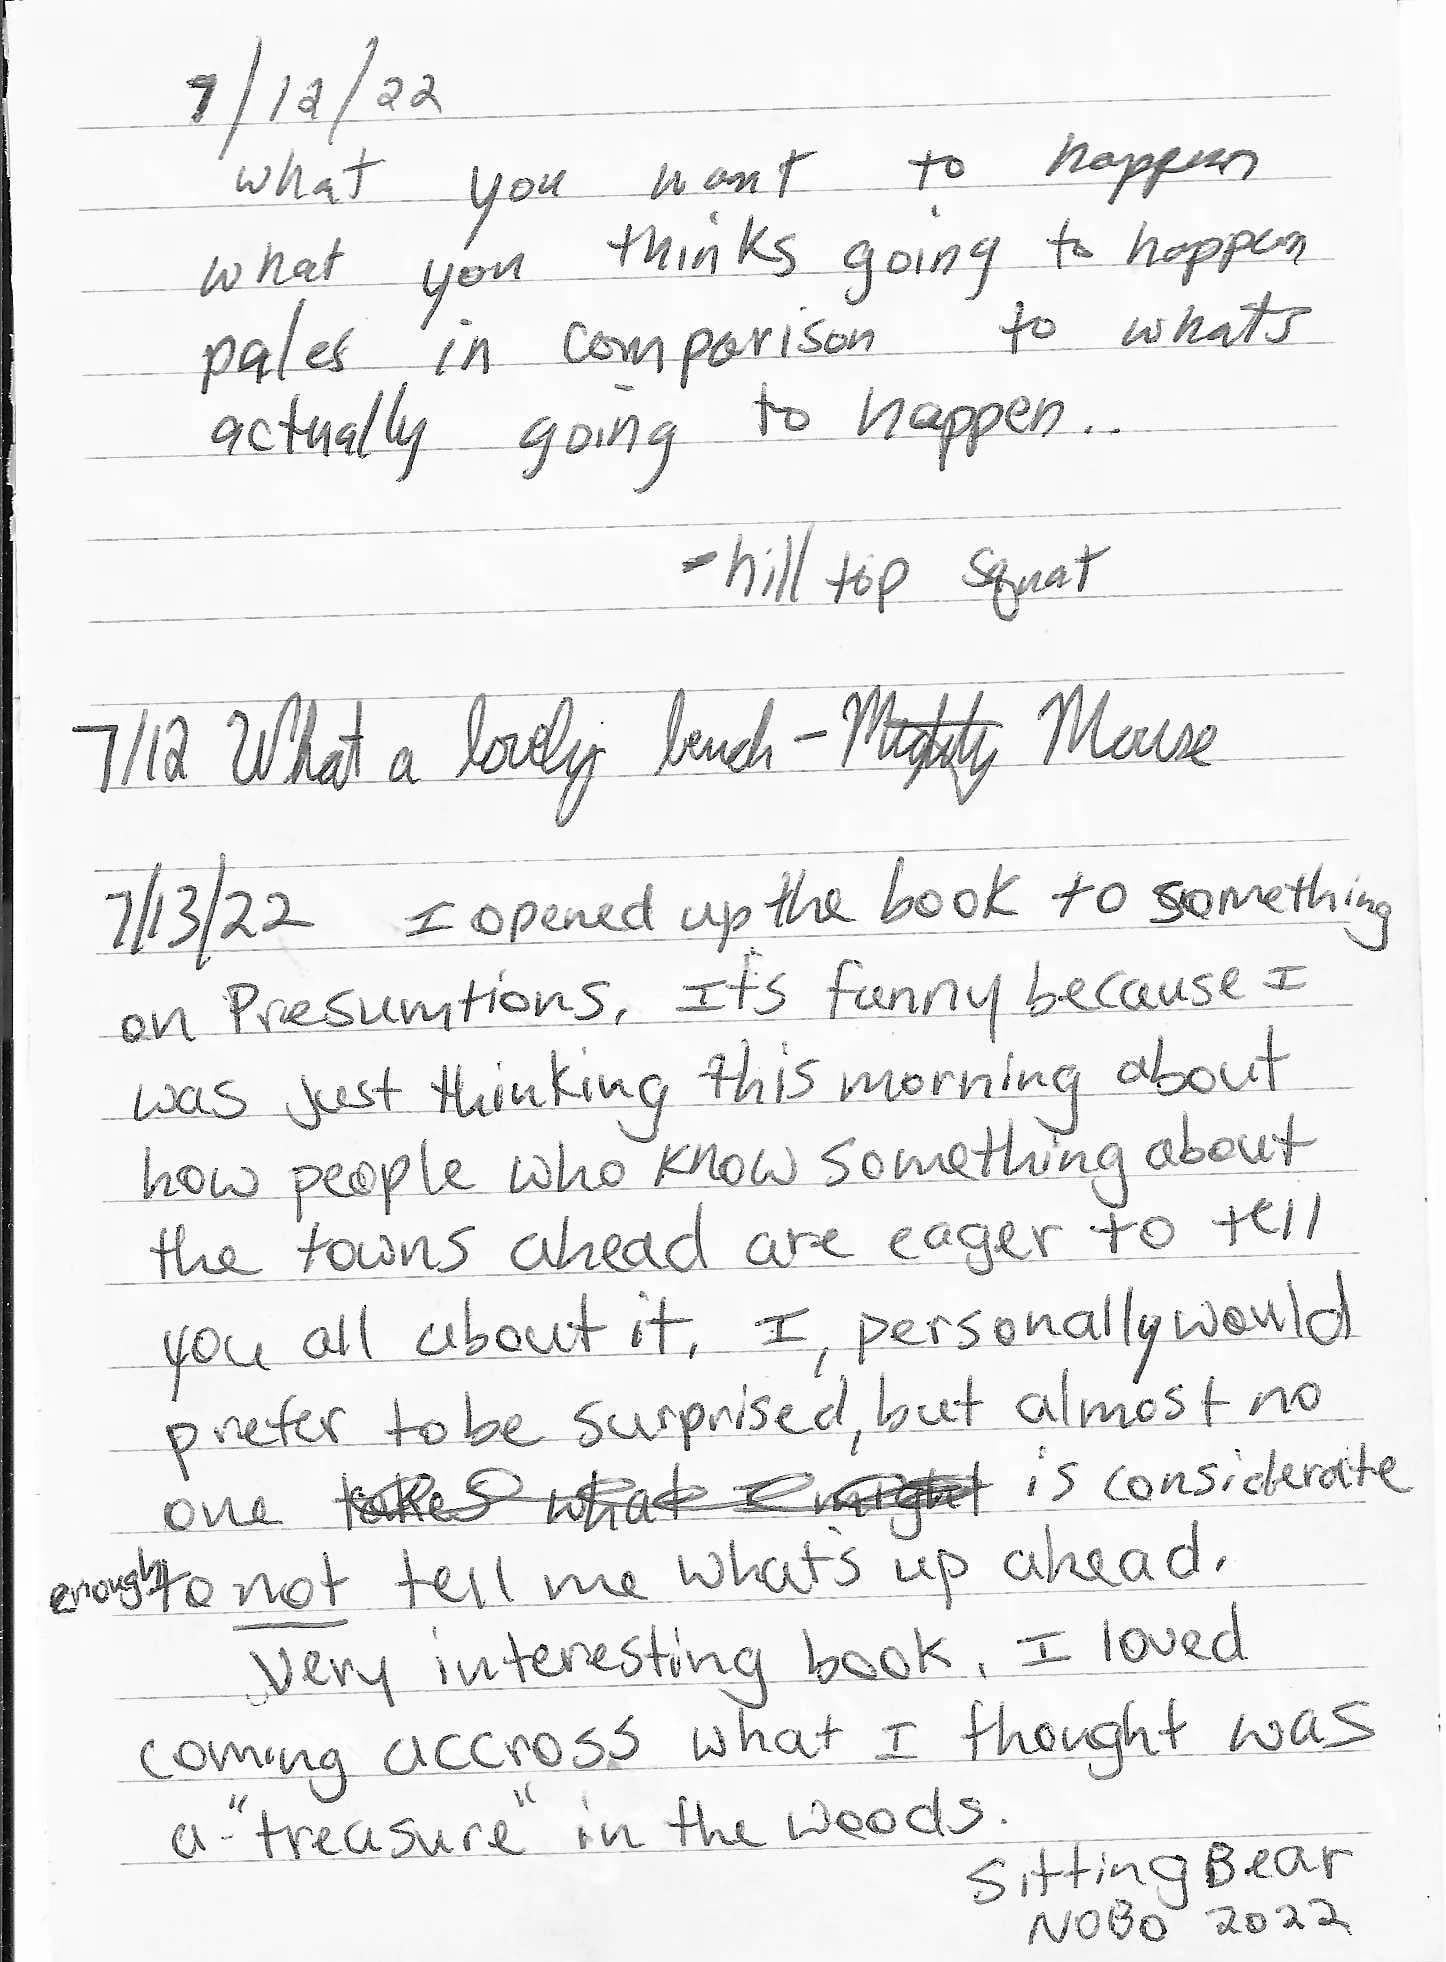 7/12/22
what you want to happen
what you thinks going to happen
pales in comparison to whats
actually going to happen..
- hill top squat
7/12 What a lovely bench - Mighty Mouse
7/13/22 I opened up the book to something
on Presumtions. It's funny because I
was just thinking this morning about
how people who know something about
the towns ahead are eager to tell
you all about it. I, personally would
prefer to be surprised, but almost no
one takes what I might is considerate
enough to not tell me what's up ahead.
Very interesting book. I loved
coming accross what I thought was
a "treasure" in the woods.
Sitting Bear
NOBO 2022